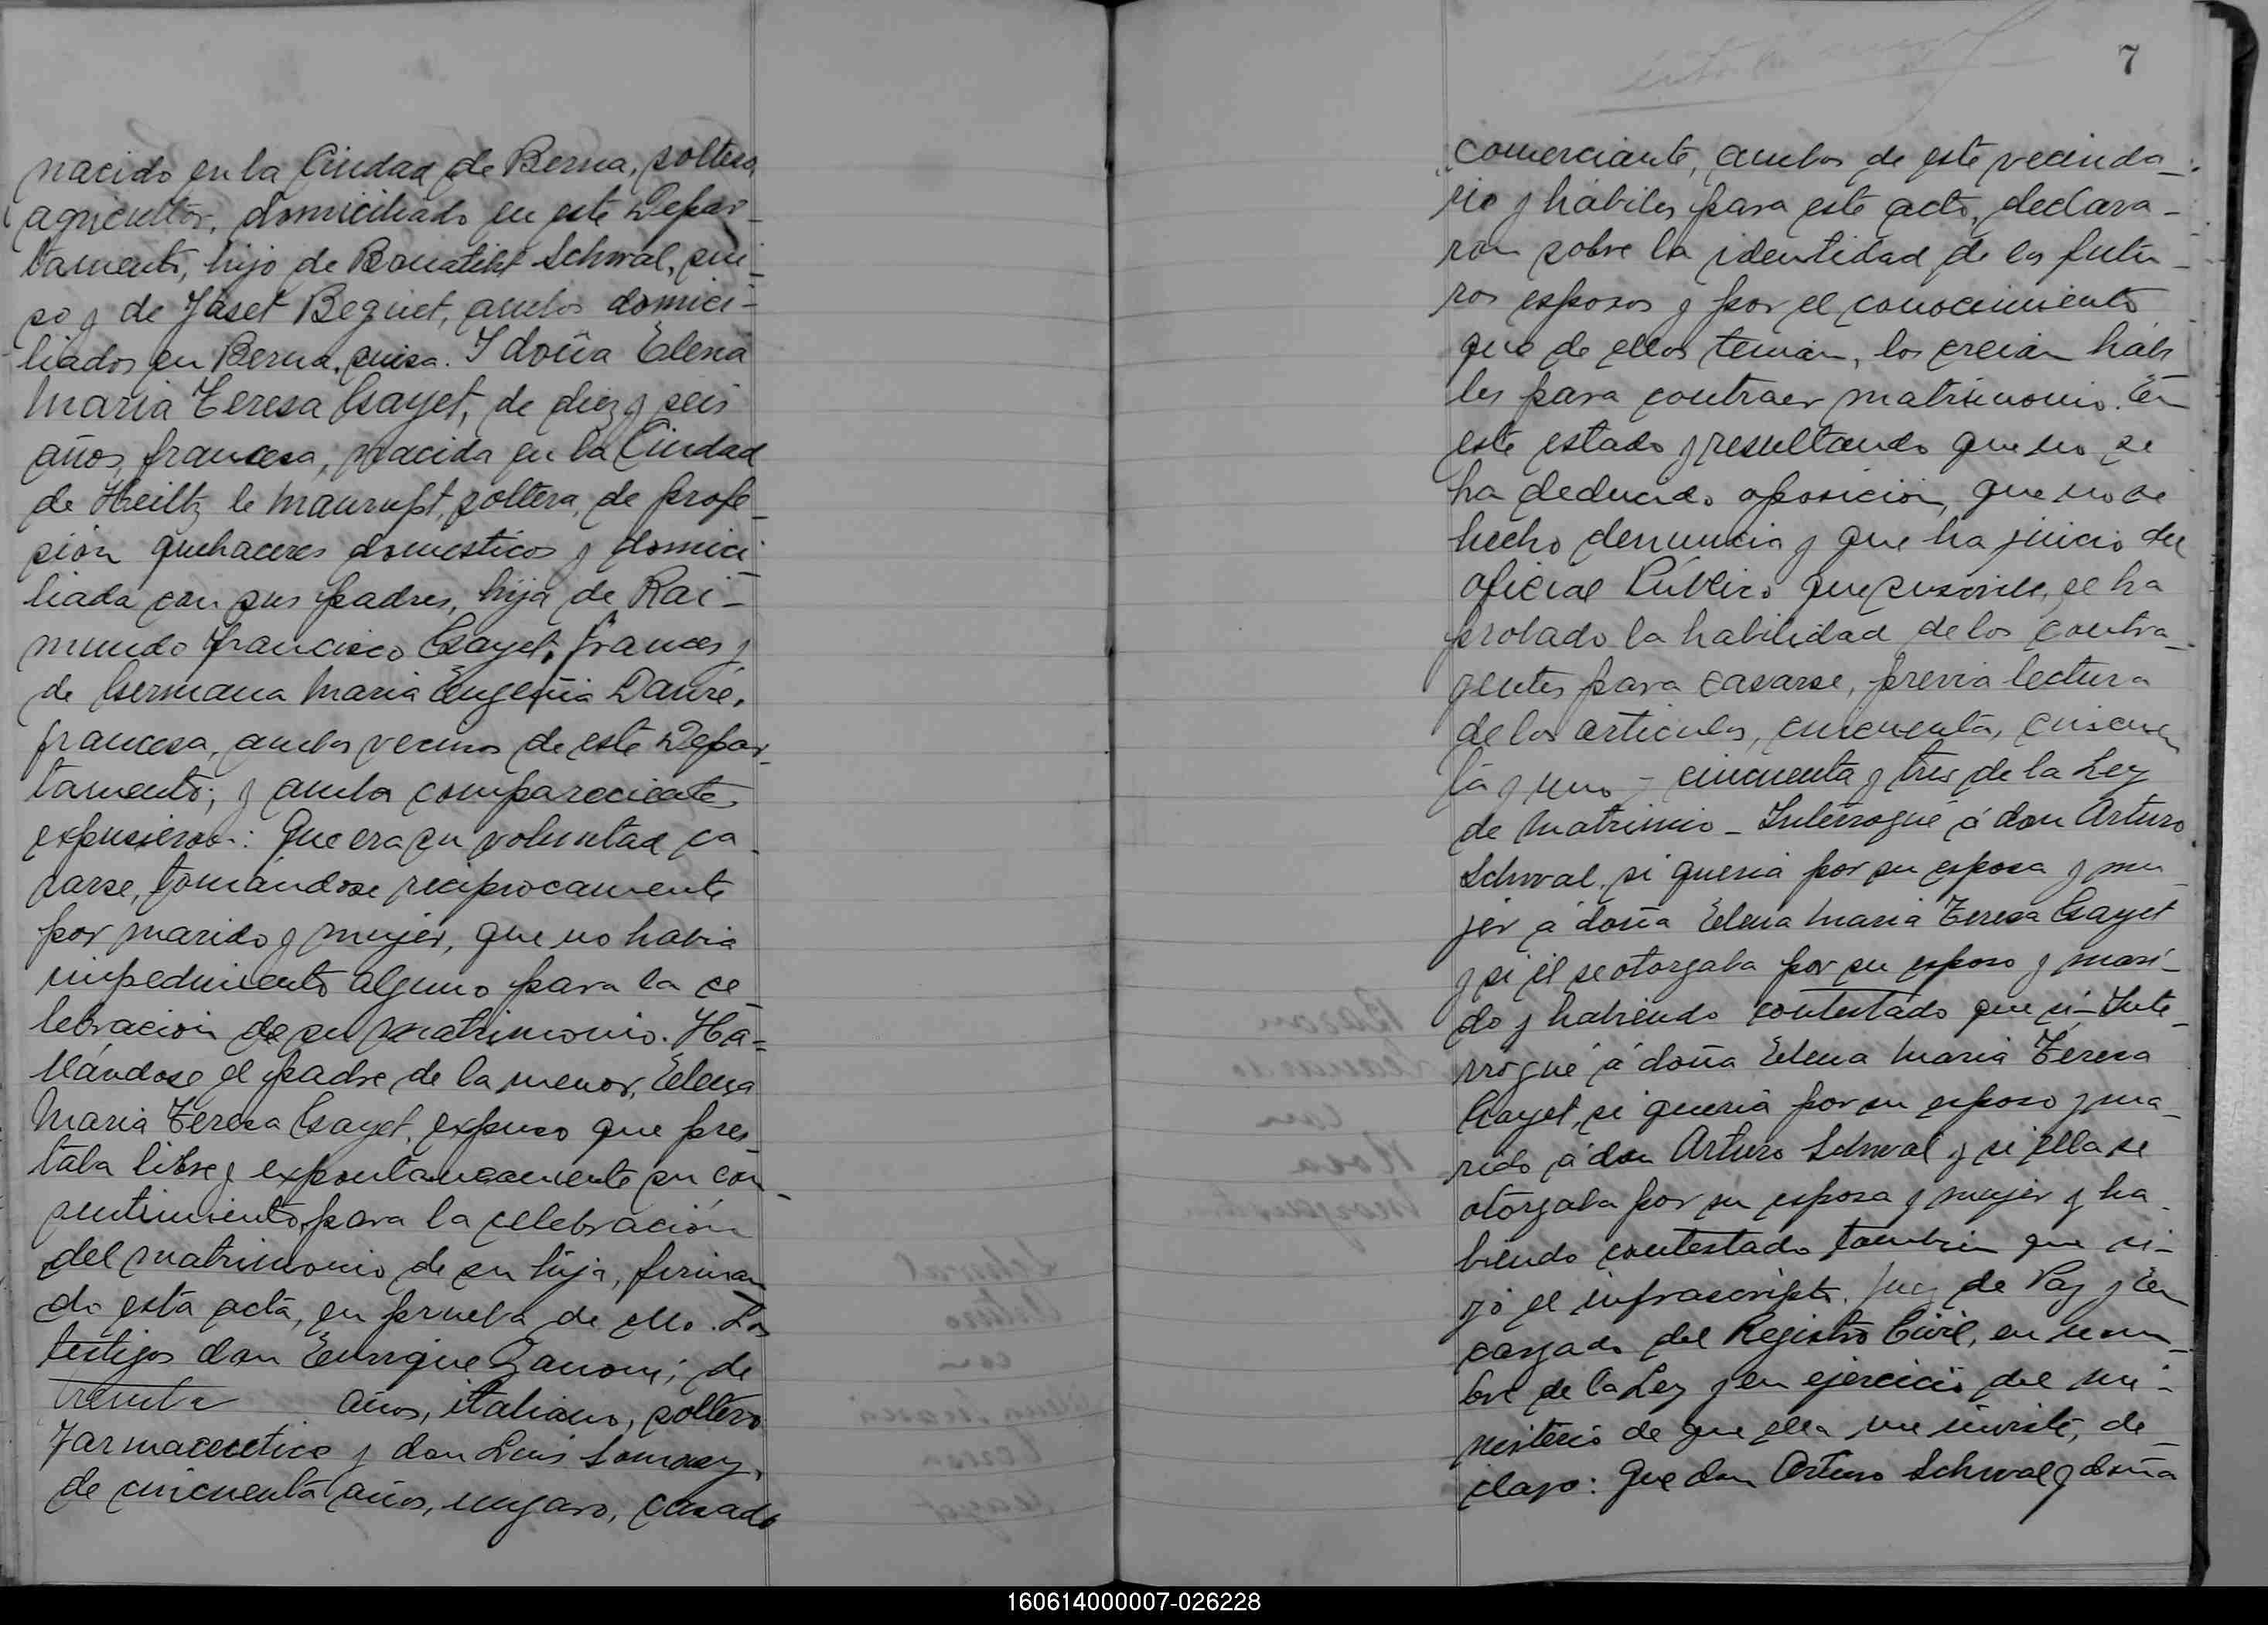 nacido en la Ciudad de Berna, soltero,
agricultor, domiciliado en este Depar-
tamento, hijo de Schwal, sui-
so y de Jaset Beguet, ambos domici-
liados en Berna, suisa. I doña Elena
Maria Teresa Gayet, de diez y seis
años, francesa, nacida en la Ciudad
de Heiltz le Maurupt, soltera, de profe-
sion quehaceres domesticos y domici-
liada con sus padres, hija de Rai-
mundo Francisco Gayet, frances y
de Germana Maria Eugeñia Dauré,
francesa, ambos vecinos de este Depar-
tamento; y ambos comparecientes
expusieron: Que era su voluntad ca-
sarse, tomándose reciprocamente
por marido y mujer, que no habia
impedimento alguno para la ce-
lebracion de su matrimonio. Ha=
llándose el padre de la menor, Elena
Maria Teresa Gayet, expuso que pres-
taba libre y expontaneamente su con-
sentimiento para la celebración
del matrimonio de su hija, firman-
do esta acta, en prueba de ello. Los
testigos don Enrique Zanoni, de
treinta años, italiano, soltero
Farmaceutico y don Luis
de cincuenta años, ungaro, casado
7
comerciante, ambos de este vecinda-
rio y habiles para este acto, declara-
ron sobre la identidad de los futu-
ros esposos y por el conocimiento
que de ellos tenian, los creian habi
les para contraer matrimonio. En
este estado y resultando que no se
ha deducido oposición, que no se
hecho denuncia y que ha juicio del
oficial Público que suscribe, se ha
probado la habilidad de los contra-
yentes para casarse, previa lectura
de los articulos, cincuenta, cincuen
ta y uno y cincuenta y tres de la Ley
de Matrimio - Interrogué á don Arturo
Schwal, si queria por su esposa y mu-
jer á doña Elena Maria Teresa Gayet
y si él se otorgaba por su esposo y mari-
do y habiendo contestado que si - Inte-
rrogué á doña Elena Maria Teresa
Gayet, si queria por su esposo y ma-
rido á don Arturo Schwal y si ella se
otorgaba por su esposa y mujer y ha-
biendo contestado tambien que si -
yo el infrascripto, Juez de Paz y En
cargado del Registro Civil, en nom-
bre de la Ley y en ejercicio del mi-
nisterio de que ella me inviste, de-
claro: Que don Arturo Schwal y doña
160614000007-026228